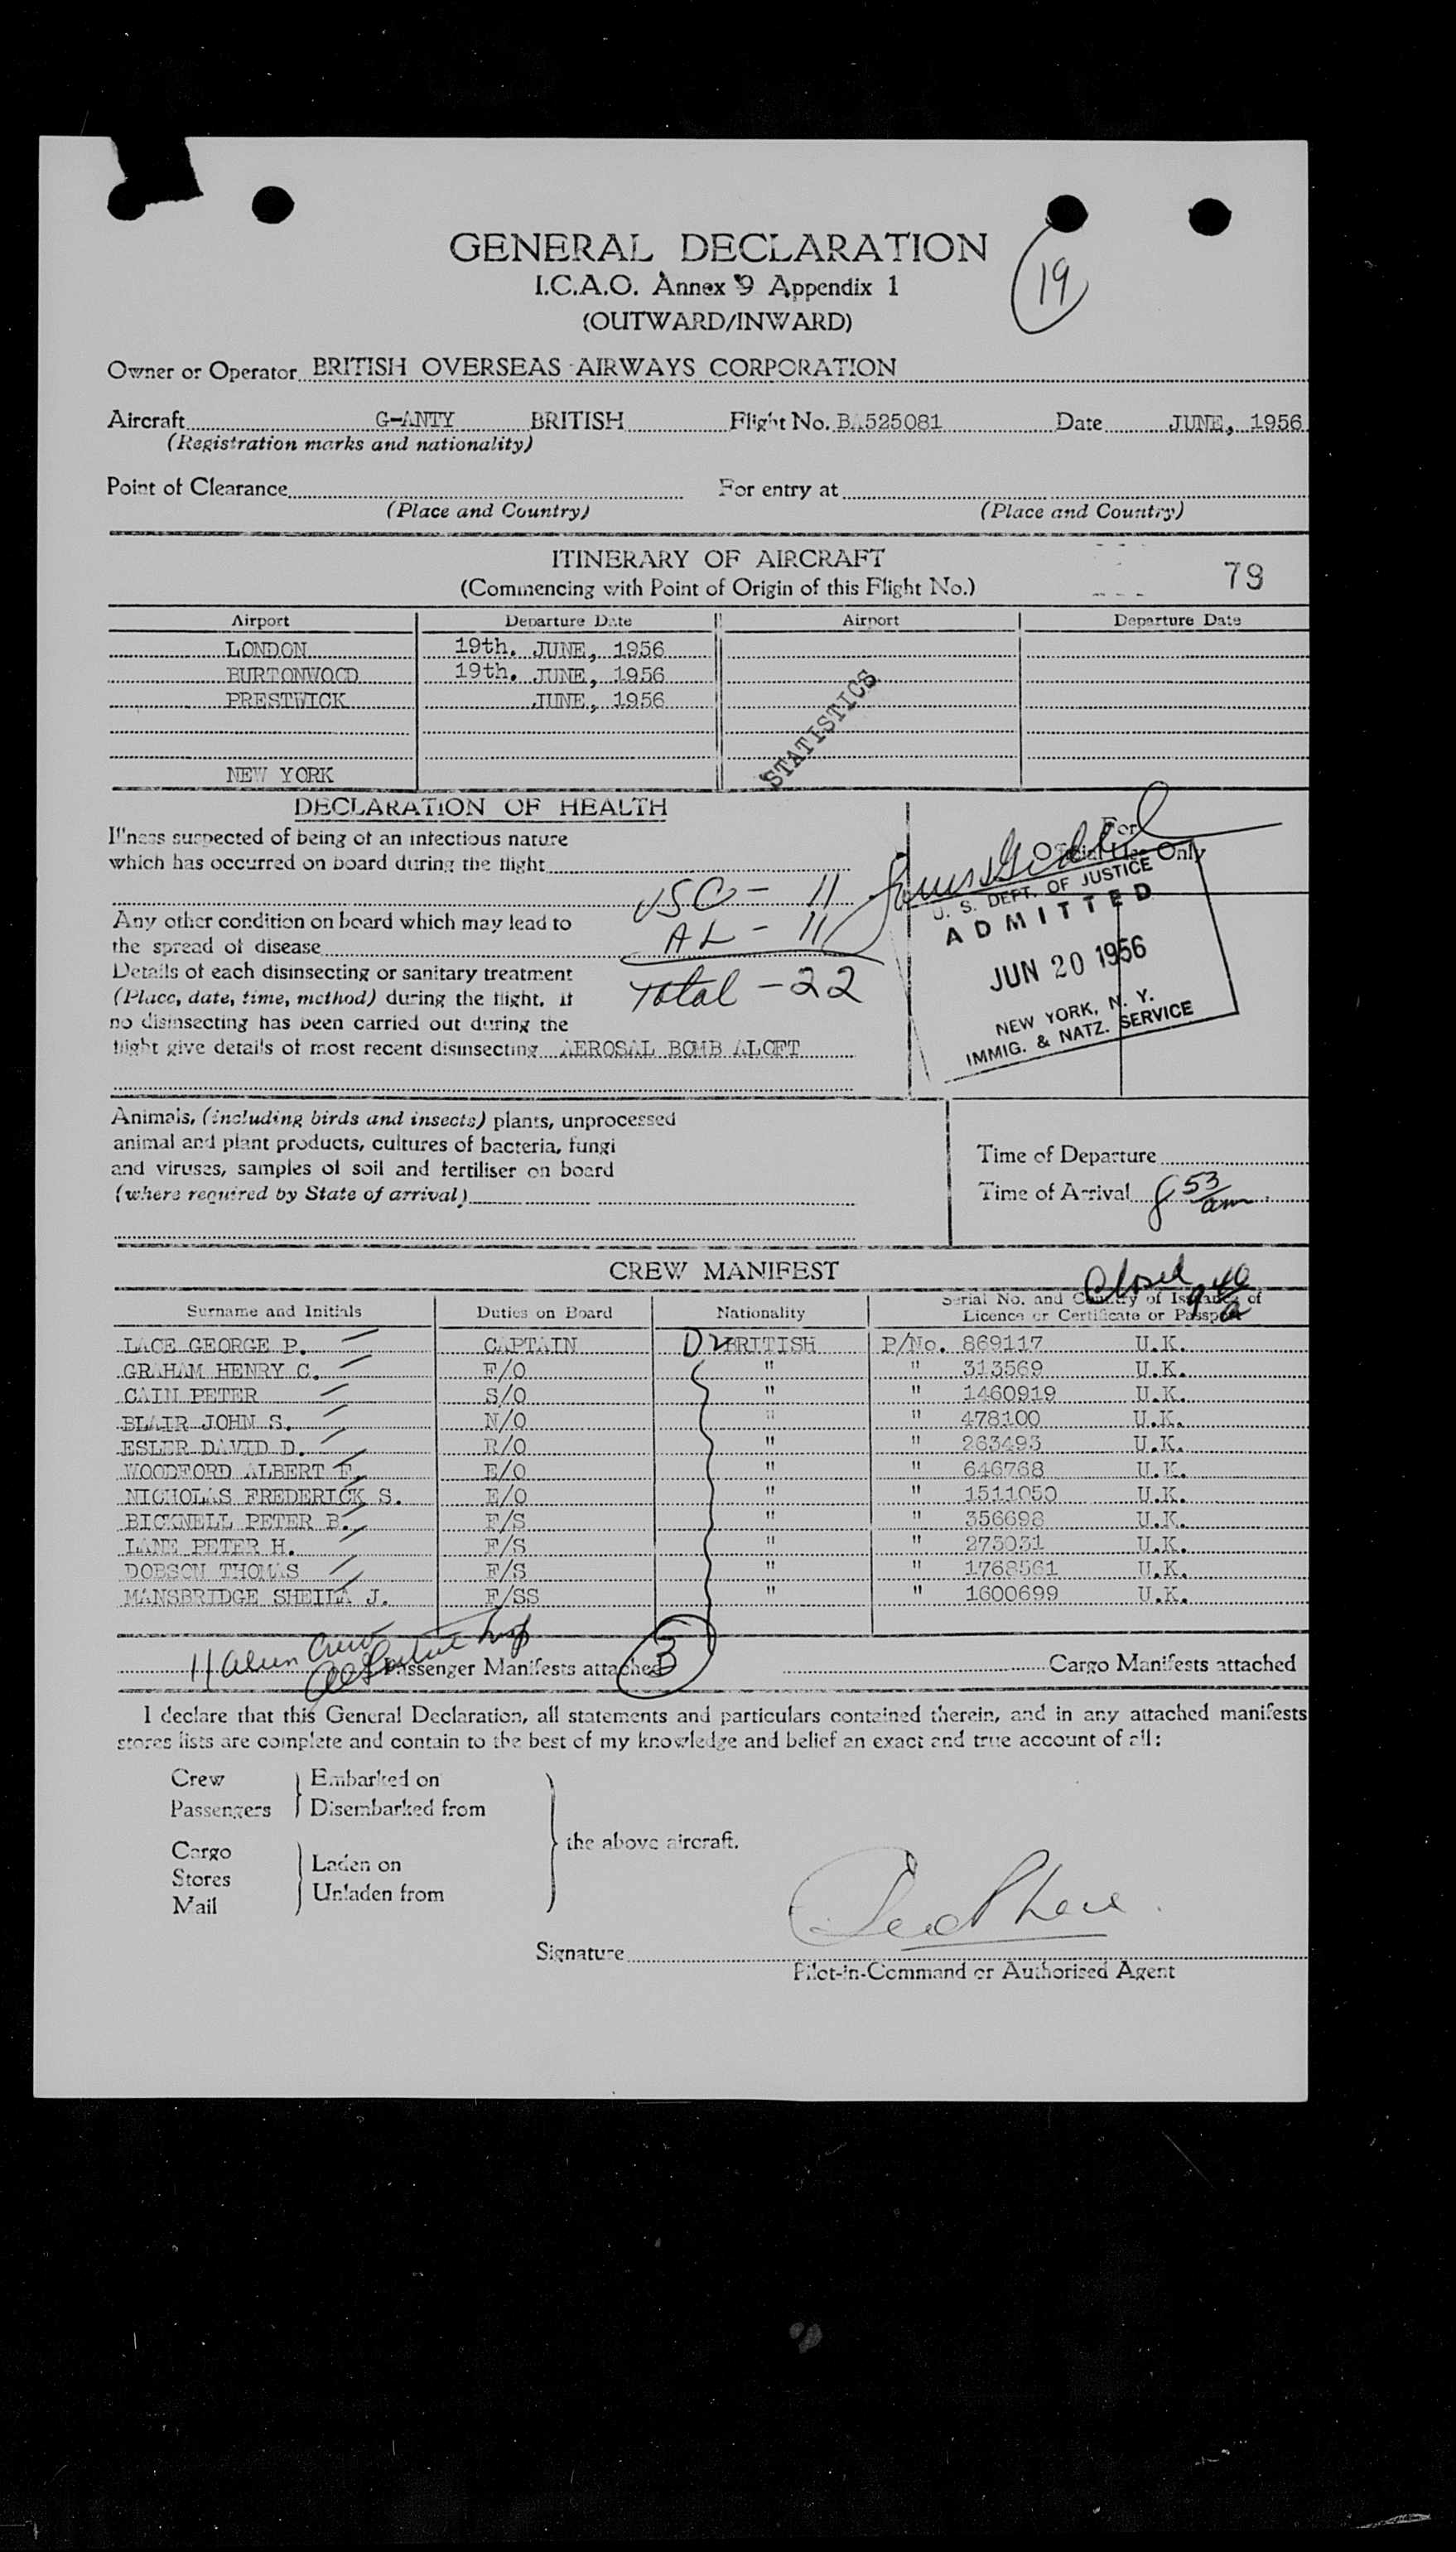 GENERAL DECLARATION
I.C.A.O. Annex 9 Appendix 1
(OUTWARD/INWARD)
19
Owner or Operator BRITISH OVERSEAS AIRWAYS CORPORATION
Aircraft G-ANTY BRITISH Flight No. BA525081 Date JUNE, 1956
(Registration marks and nationality)
Point of Clearance For entry at
(Place and Country) (Place and Country)
ITINERARY OF AIRCRAFT
(Commencing with Point of Origin of this Flight No.)
79
Airport Departure Date Airport Departure Date
LONDON 19th. JUNE, 1956
BURTONWOOD 19th. JUNE, 1956
PRESTWICK JUNE, 1956
STATISTICS
NEW YORK
DECLARATION OF HEALTH
Illness suspected of being of an infectious nature
which has occurred on board during the flight
Any other condition on board which may lead to
the spread of disease
Details of each disinsecting or sanitary treatment
(Place, date, time, method) during the flight. If
no disinsecting has been carried out during the
flight give details of most recent disinsecting AEROSAL BOMB ALOFT
USC - 11
AL - 11
Total - 22
For
Official Use Only
U. S. DEPT. OF JUSTICE
ADMITTED
JUN 20 1956
NEW YORK, N. Y.
IMMIG. & NATZ. SERVICE
Animals, (including birds and insects) plants, unprocessed
animal and plant products, cultures of bacteria, fungi
and viruses, samples of soil and fertiliser on board
(where required by State of arrival)
Time of Departure
Time of Arrival 8 53 am
CREW MANIFEST
Closed 9 40 a
Surname and Initials Duties on Board Nationality Serial No. and Country of Issuance of
Licence or Certificate or Passport
LACE GEORGE P. CAPTAIN D2 BRITISH P/No. 869117 U.K.
GRAHAM HENRY C. F/O " " 313569 U.K.
CAIN PETER S/O " " 1460919 U.K.
BLAIR JOHN S. N/O " " 478100 U.K.
ESLER DAVID D. R/O " " 263493 U.K.
WOODFORD ALBERT F. E/O " " 646768 U.K.
NICHOLAS FREDERICK S. E/O " " 1511050 U.K.
BICKNELL PETER B. F/S " " 356698 U.K.
LANE PETER H. F/S " " 273031 U.K.
DOBSON THOMAS F/S " " 1768561 U.K.
MANSBRIDGE SHEILA J. F/SS " " 1600699 U.K.
11 alien crew
Passenger Manifests attached 3 Cargo Manifests attached
I declare that this General Declaration, all statements and particulars contained therein, and in any attached manifests
stores lists are complete and contain to the best of my knowledge and belief an exact and true account of all:
Crew Embarked on
Passengers Disembarked from
the above aircraft.
Cargo Laden on
Stores
Mail Unladen from
Signature
Pilot-in-Command or Authorised Agent